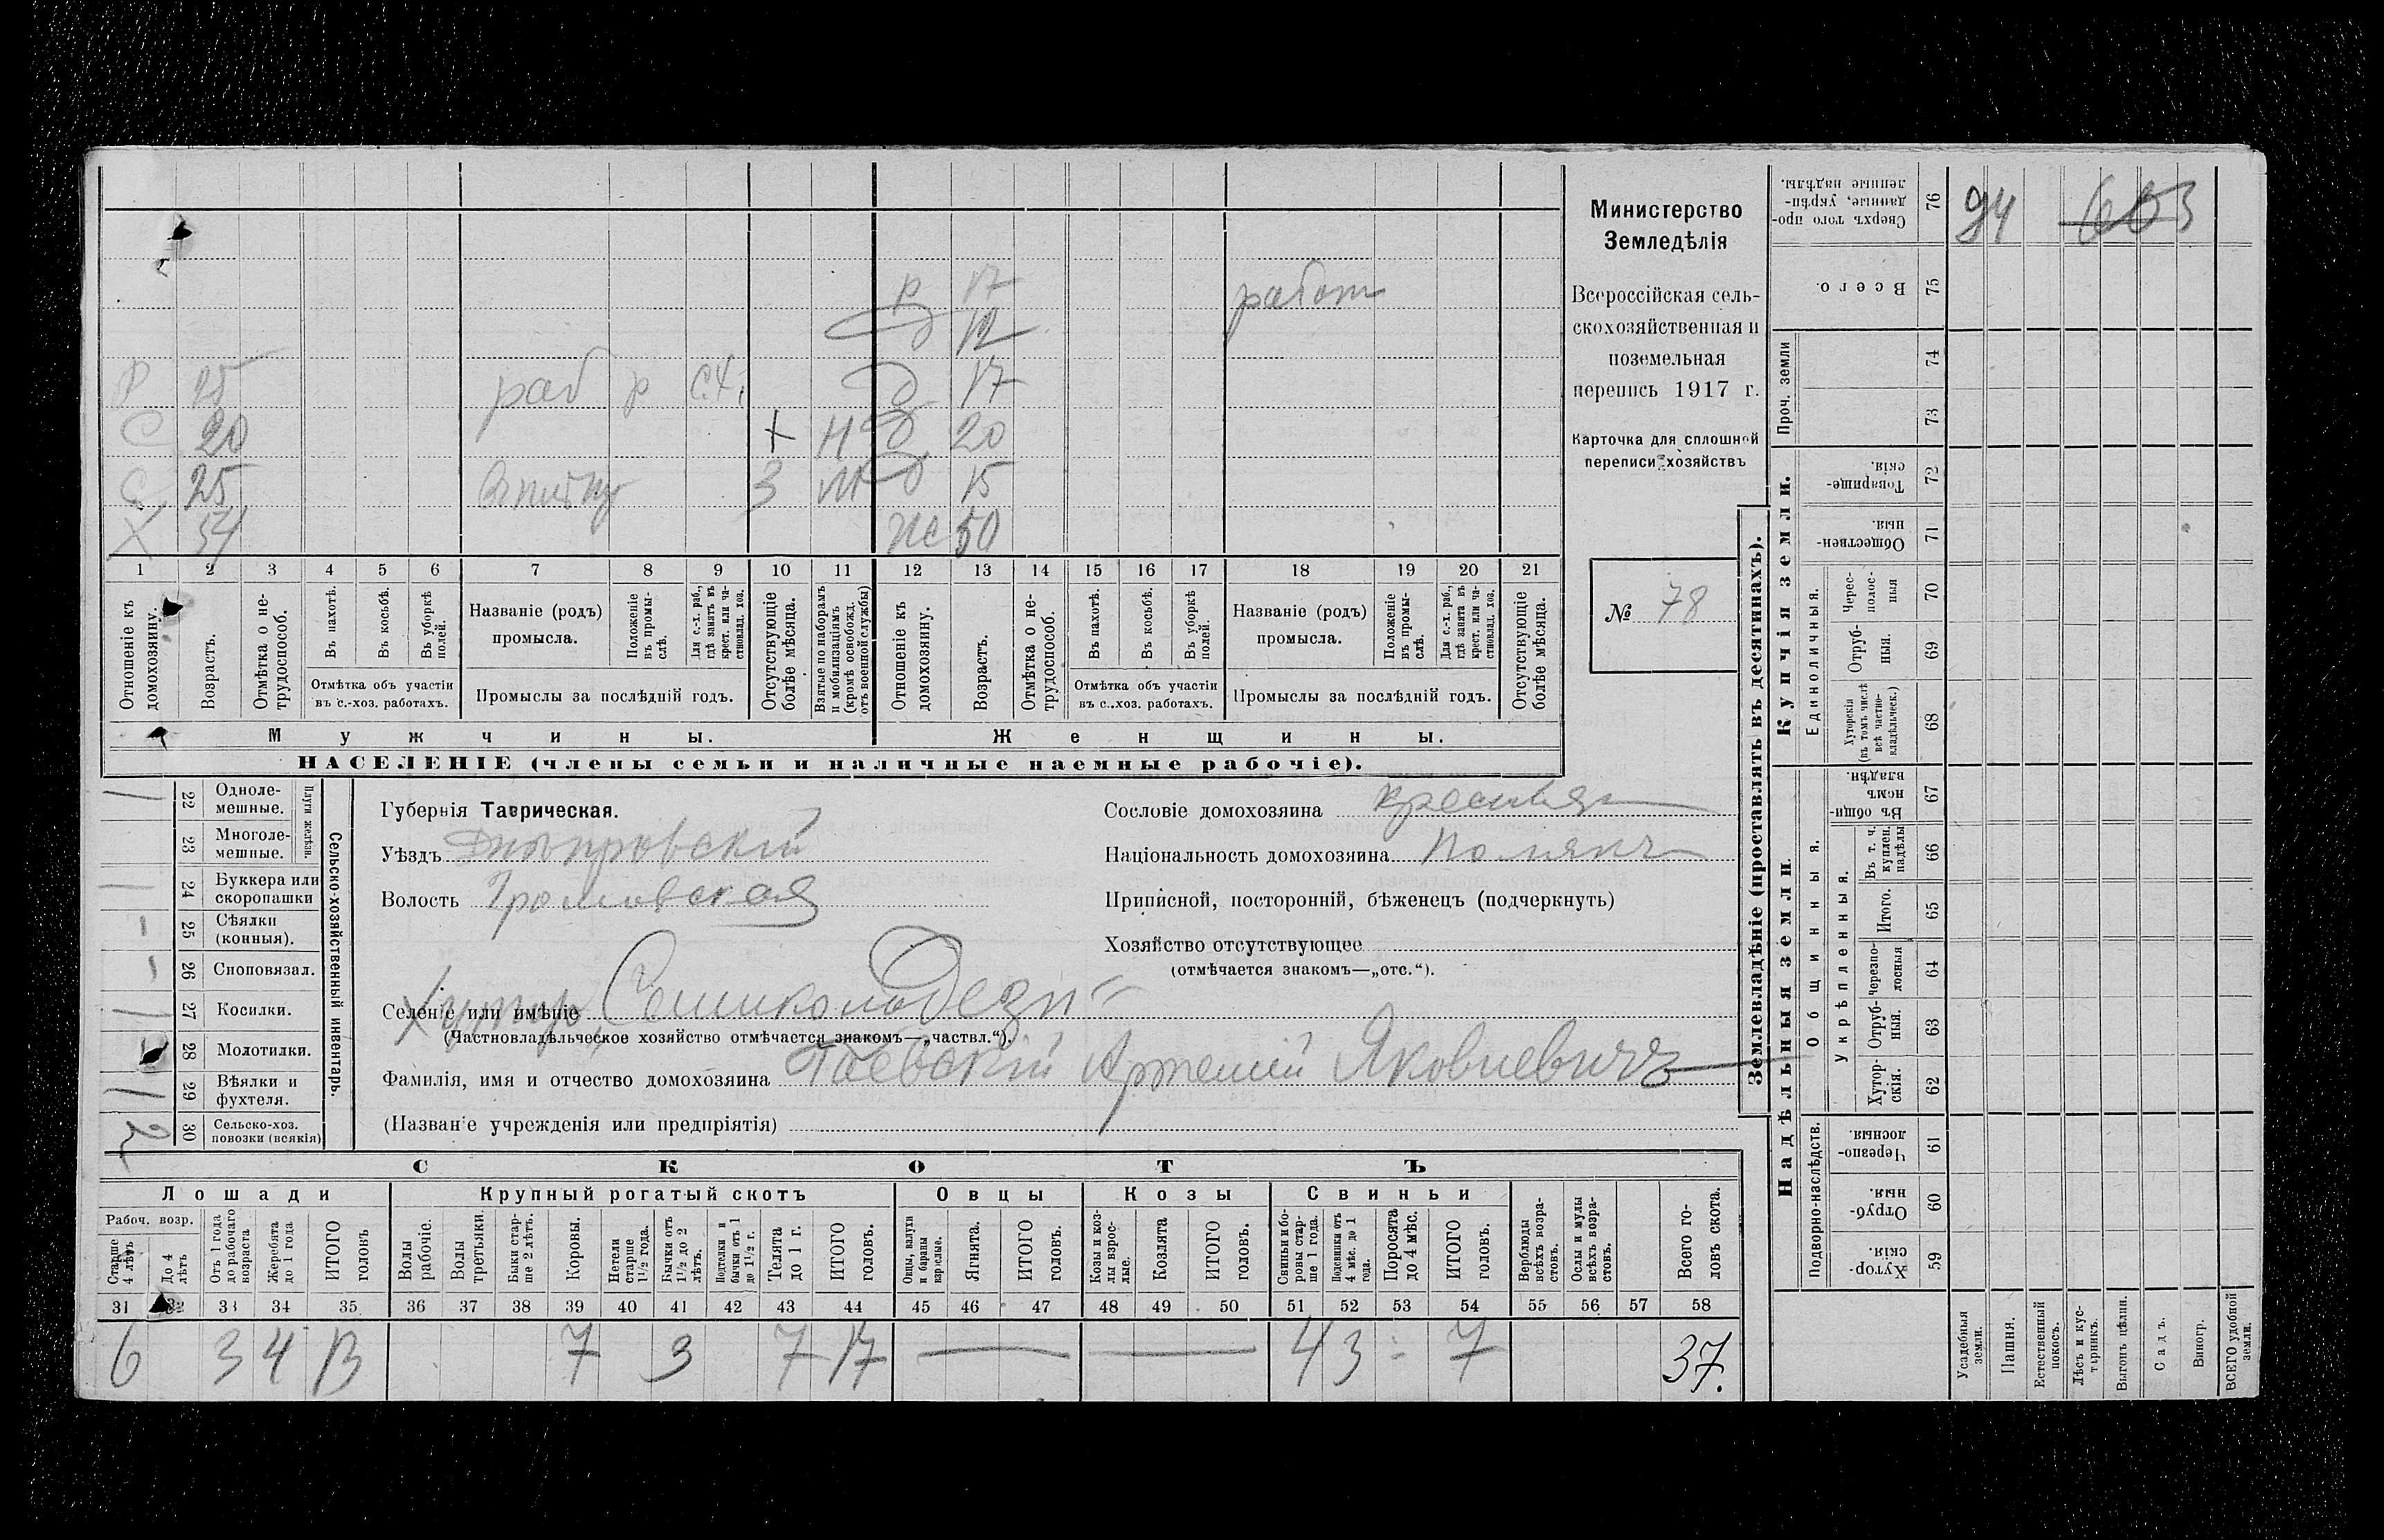 Министерство
Земледѣлія
Всероссійская сель-
скохозяйственная и
поземельная
перепись 1917 г.
Карточка для сплошной
переписи хозяйствъ
№ 78
Р 17 работ
12
Р 15 раб р С.Х. д 17
С 20 + Н д 20
С 25 З М д 15
Х 54 же 50
1 2 3 4 5 6 7 8 9 10 11 12 13 14 15 16 17 18 19 20 21
Отношеніе къ домохозяину.
Возрастъ.
Отмѣтка о не-трудоспособ.
Въ пахотѣ.
Въ косьбѣ.
Въ уборкѣ полей.
Отмѣтка объ участіи
въ с.-хоз. работахъ.
Названіе (родъ)
промысла.
Положеніе въ промы-слѣ.
Для с.-х. раб., гдѣ занятъ въ крест. или ча-стновлад. хоз.
Промыслы за послѣдній годъ.
Отсутствующіе болѣе мѣсяца.
Взятые по наборамъ и мобилизаціямъ (кромѣ освобожд. отъ военной службы)
Отношеніе къ домохозяину.
Возрастъ.
Отмѣтка о не-трудоспособ.
Въ пахотѣ.
Въ косьбѣ.
Въ уборкѣ полей.
Отмѣтка объ участіи
въ с.-хоз. работахъ.
Названіе (родъ)
промысла.
Положеніе въ промы-слѣ.
Для с.-х. раб., гдѣ занята въ крест. или ча-стновлад. хоз.
Промыслы за послѣдній годъ.
Отсутствующіе болѣе мѣсяца.
Мужчины.
Женщины.
НАСЕЛЕНІЕ (члены семьи и наличные наемные рабочіе).
Сельско-хозяйственный инвентарь.
Плуги желѣзн.
22 Одноле-мешные.
23 Многоле-мешные.
24 Буккера или скоропашки
25 Сѣялки (конныя).
26 Сноповязал.
27 Косилки.
28 Молотилки.
29 Вѣялки и фухтеля.
30 Сельско-хоз. повозки (всякія)
1
—
-
-
1
1
2
Губернія Таврическая.
Уѣздъ Днѣпровскій
Волость Громовская
Сословіе домохозяина
Національность домохозяина
Приписной, посторонній, бѣженецъ (подчеркнуть)
Хозяйство отсутствующее
(отмѣчается знакомъ—„отс.“).
Селеніе или имѣніе Хутор Семиколодези
(Частновладѣльческое хозяйство отмѣчается знакомъ—„частвл.“).
Фамилія, имя и отчество домохозяина Гаевскій Артемій Яковлевичъ
(Названіе учрежденія или предпріятія)
СКОТЪ
Лошади
Крупный рогатый скотъ
Овцы
Козы
Свиньи
Рабоч. возр.
Старше 4 лѣтъ
До 4 лѣтъ
Отъ 1 года до рабочаго возраста
Жеребята до 1 года
ИТОГО головъ
Волы рабочіе.
Волы третьяки.
Быки стар-ше 2 лѣтъ.
Коровы.
Нетели старше 1 1/2 года.
Бычки отъ 1 1/2 до 2 лѣтъ.
Подтелки и бычки отъ 1 до 1 1/2 г.
Телята до 1 г.
ИТОГО головъ.
Овцы, валухи и бараны взрослые.
Ягнята.
ИТОГО головъ.
Козы и коз-лы взрос-лые.
Козлята
ИТОГО головъ.
Свиньи и бо-ровы стар-ше 1 года.
Подсвинки отъ 4 мѣс. до 1 года.
Поросята до 4 мѣс.
ИТОГО головъ.
Верблюды всѣхъ возра-стовъ.
Ослы и мулы всѣхъ возра-стовъ.
Всего го-ловъ скота.
31 32 33 34 35 36 37 38 39 40 41 42 43 44 45 46 47 48 49 50 51 52 53 54 55 56 57 58
6 3 4 13 7 3 7 17 — — 4 3 - 7 37.
Землевладѣніе (проставлять въ десятинахъ).
Надѣльныя земли
Купчія земли.
Проч. земли
Подворно-наслѣдств.
Общинныя.
Укрѣпленныя.
Единоличныя.
76 Сверхъ того про-данные, укрѣп-ленные надѣлы.
94
75 Всего.
74
73
72 Товарище-скія.
71 Обществен-ныя.
70 Черес-полос-ныя
69 Отруб-ныя.
68 Хуторскія (въ томъ числѣ всѣ частно-владѣльческ.)
67 Въ общи-номъ владѣн.
66 Въ т. ч. куплен. надѣлы
65 Итого.
64 Черезпо-лосныя
63 Отруб-ныя.
62 Хутор-скія.
61 Черезпо-лосныя.
60 Отруб-ныя.
59 Хутор-скія.
Усадебныя земли.
Пашня.
Естественный покосъ.
Лѣсъ и кус-тарникъ.
Выгонъ цѣлин.
Садъ.
Виногр.
ВСЕГО удобной земли.